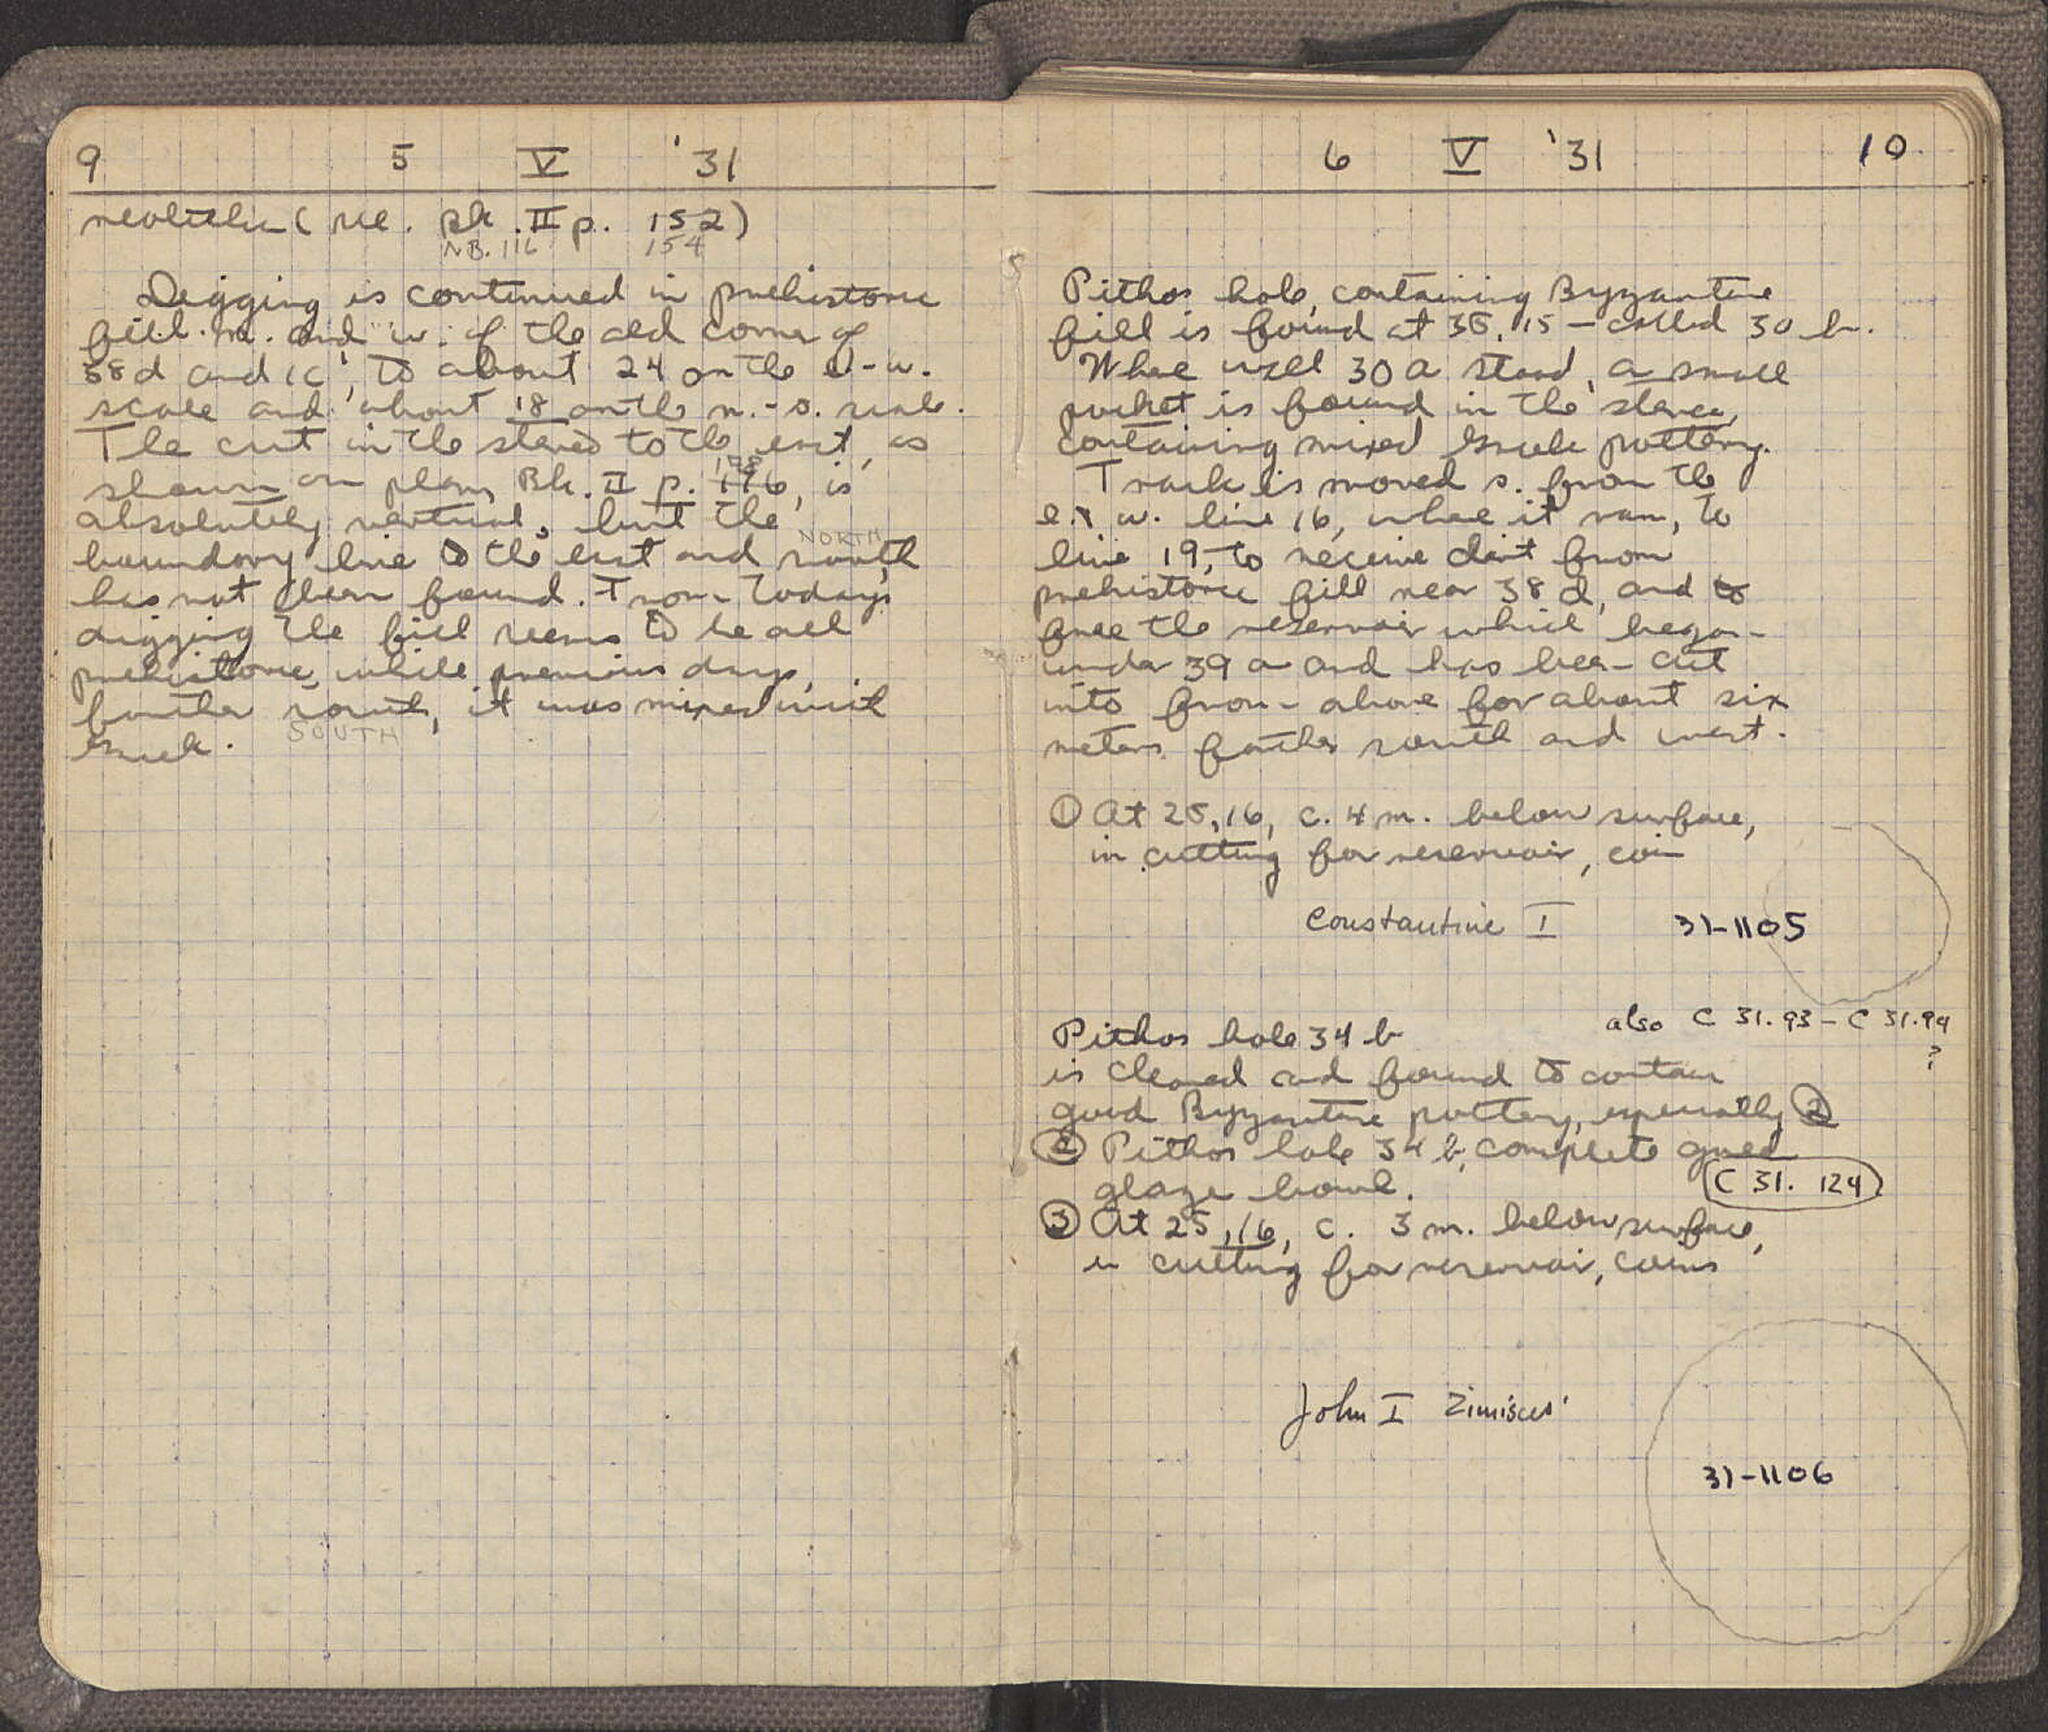 9 5 V '31
neolithic (see. Bk. II p. 152)
NB. 116 154
Digging is continued in prehistoric
fill n. and w. of the old corner of
38d and 1c, to about 24 on the e-w.
scale and about 18 on the n.-s. scale.
The cut in the stereo to the east, as
188
shown on plan, Bk. II p. 176, is
absolutely vertical, but the
NORTH
boundary line to the east and north
has not been found. From todays
digging the fill seems to be all
prehistoric, while previous days,
farther south, it was mixed with
SOUTH
Greek.
6 V '31 10
Pithos hole, containing Byzantine
fill is found at 35, 15 – called 30 b.
Where well 30 a stood, a small
pocket is found in the stereo,
containing mixed Greek pottery.
Track is moved s. from the
e. w. line 16, where it ran, to
line 19, to receive dirt from
prehistoric fill near 38 d, and to
free the reservoir which began
under 39 a and has been cut
into from above for about six
meters farther south and west.
① At 25, 16, c. 4 m. below surface,
in cutting for reservoir, coin
Constantine I 31-1105
also C 31.93 – C 31.94
?
Pithos hole 34 b
is cleaned and found to contain
good Byzantine pottery, especially ②
② Pithos hole 34 b, complete glazed
glaze bowl. C 31. 124
③ At 25, 16, c. 3 m. below surface,
in cutting for reservoir, coins
John I Zimisces
31-1106